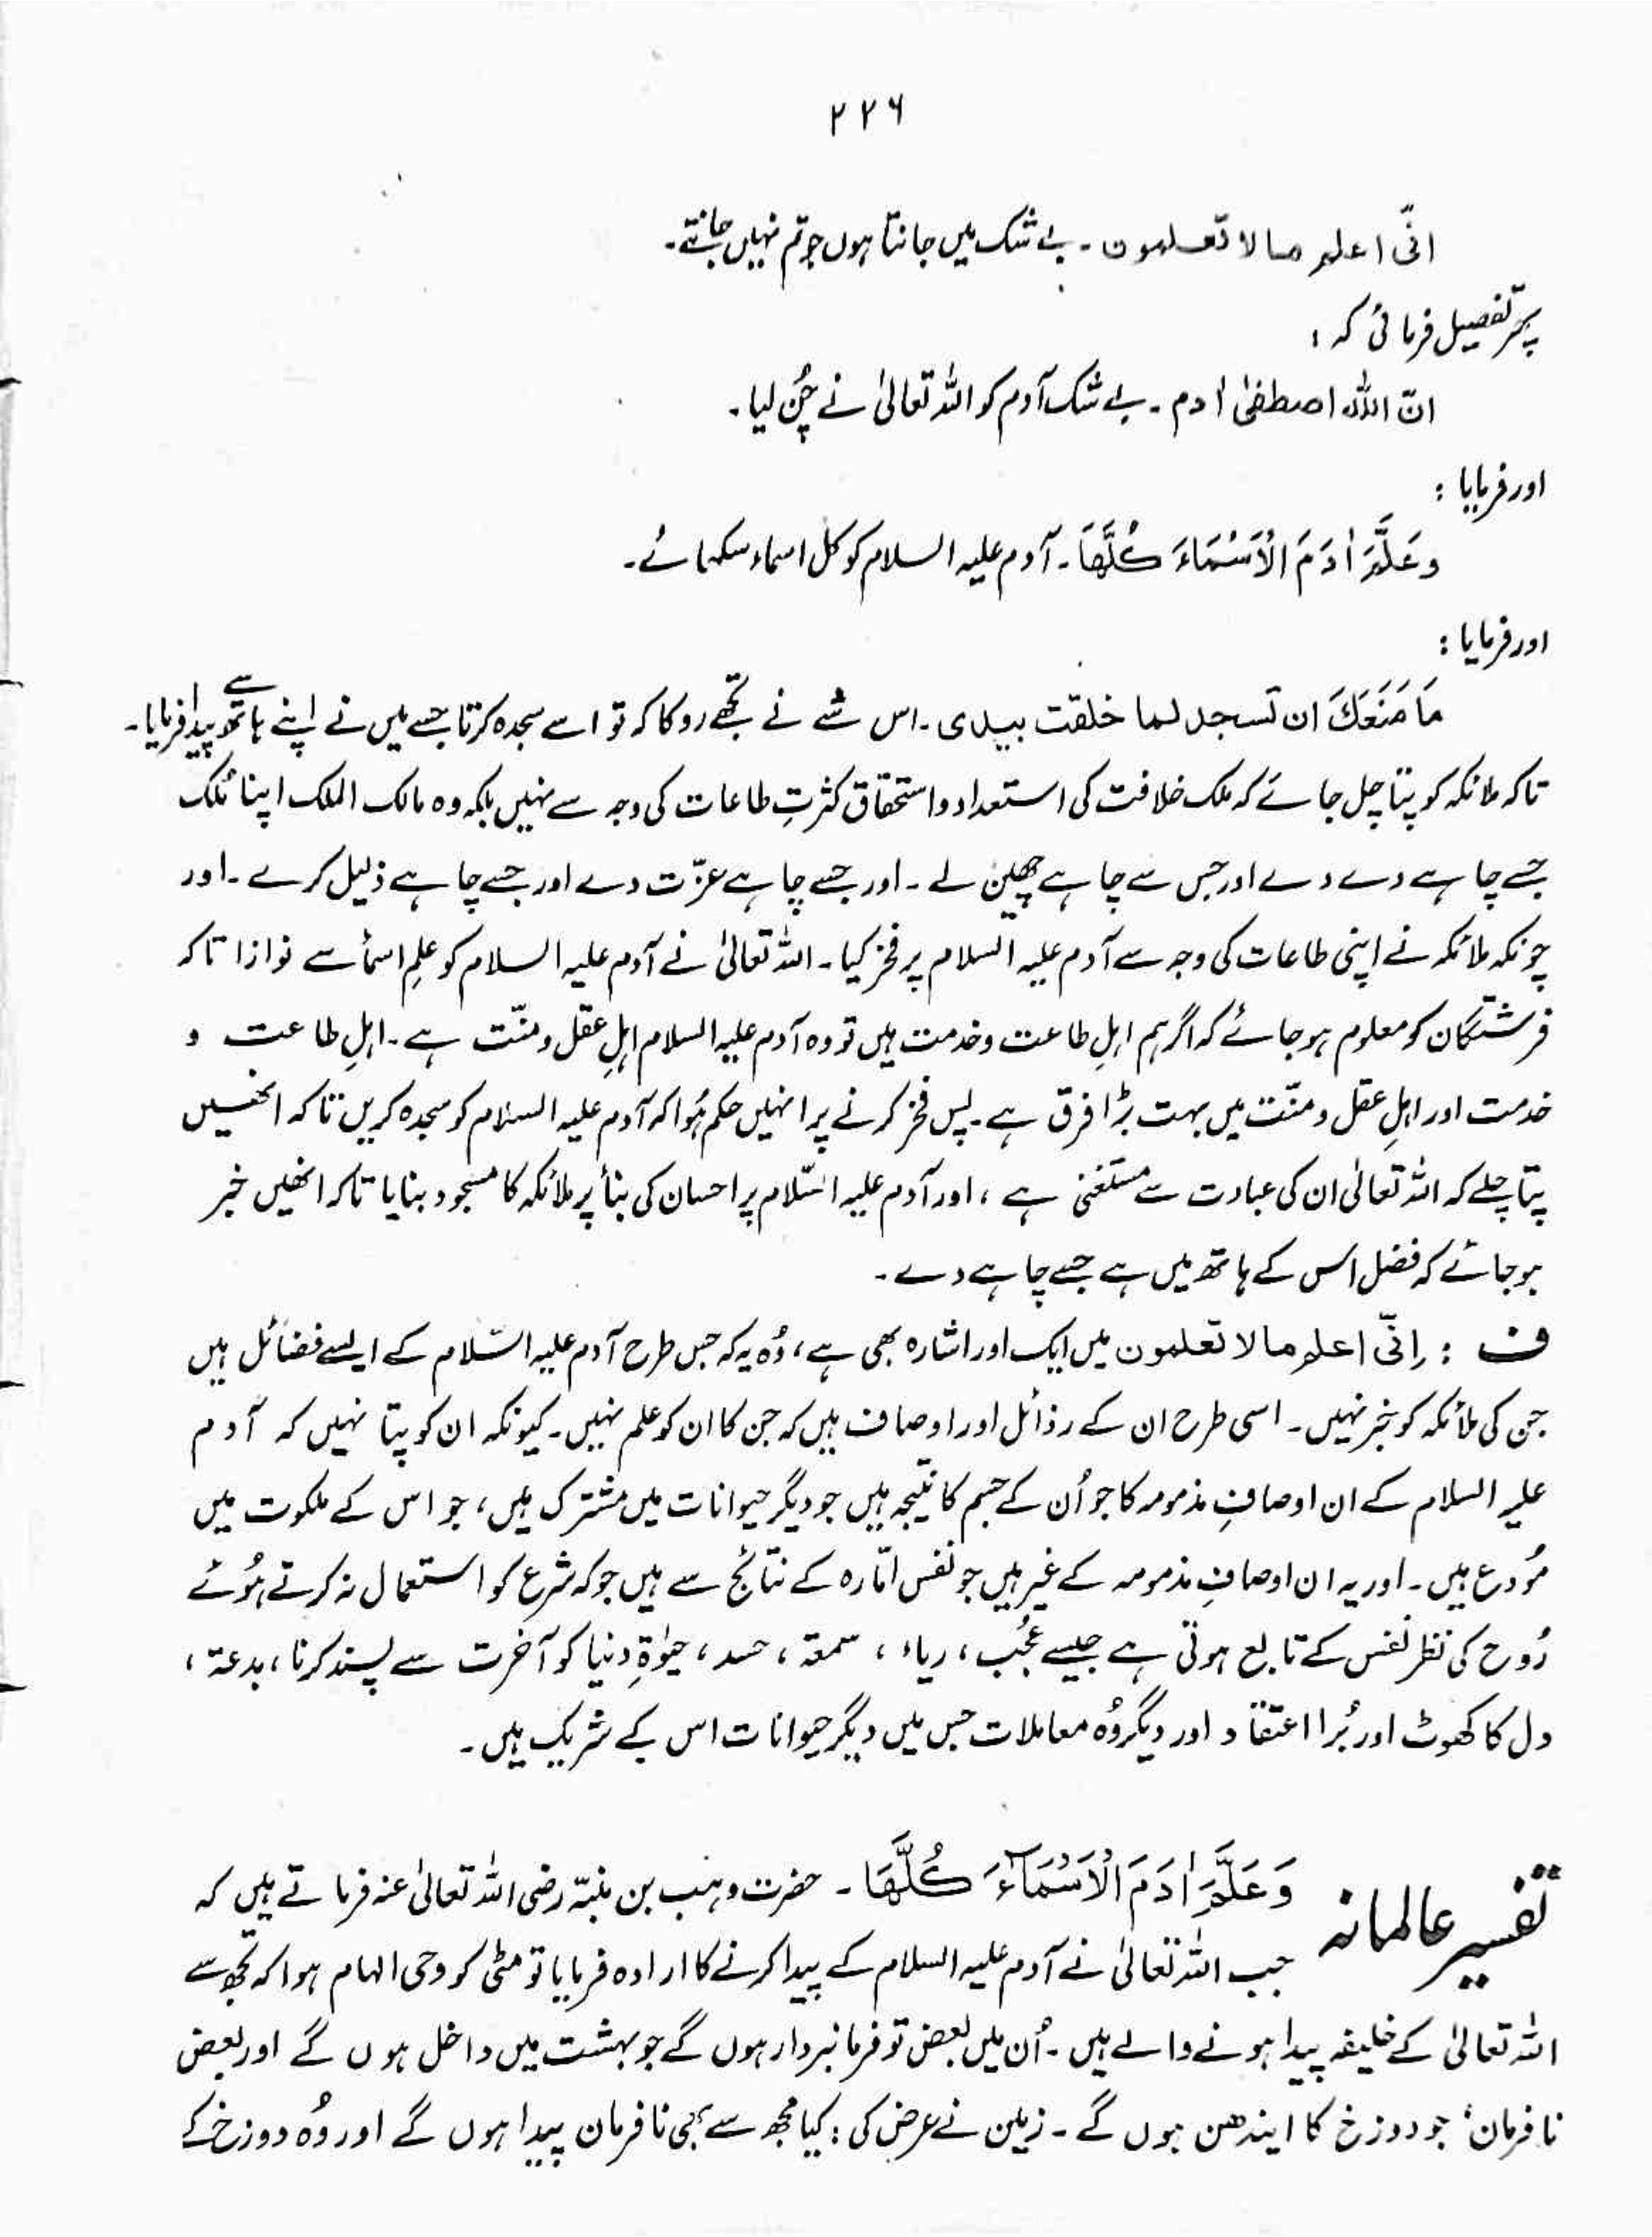 ۲۲۶
انّی اعلم ما لا تعلمون ۔ بے شک میں جانتا ہوں جو تم نہیں جانتے۔
پھر تفصیل فرمائی کہ :
انّ اللّٰہ اصطفٰی اٰدم ۔ بے شک آدم کو اللہ تعالیٰ نے چُن لیا۔
اور فرمایا :
وَعَلَّمَ اٰدَمَ الْاَسْمَاءَ كُلَّهَا۔ آدم علیہ السلام کو کل اسماء سکھائے۔
اور فرمایا :
مَا مَنَعَكَ ان تسجد لما خلقت بیدی ۔ اس شے نے تجھے روکا کہ تو اسے سجدہ کرتا جسے میں نے اپنے ہاتھ سے پیدا فرمایا۔
تاکہ ملائکہ کو پتا چل جائے کہ ملک خلافت کی استعداد و استحقاق کثرتِ طاعات کی وجہ سے نہیں بلکہ وہ مالک الملک اپنا مُلک
جسے چاہے دے دے اور جس سے چاہے چھین لے ۔ اور جسے چاہے عزّت دے اور جسے چاہے ذلیل کرے ۔ اور
چونکہ ملائکہ نے اپنی طاعات کی وجہ سے آدم علیہ السلام پر فخر کیا ۔ اللہ تعالیٰ نے آدم علیہ السلام کو علمِ اسماء سے نوازا تاکہ
فرشتگان کو معلوم ہو جائے کہ اگر ہم اہلِ طاعت و خدمت ہیں تو وہ آدم علیہ السلام اہلِ عقل و منّت ہے ۔ اہلِ طاعت و
خدمت اور اہلِ عقل و منّت میں بہت بڑا فرق ہے ۔ پس فخر کرنے پر انہیں حکم ہُوا کہ آدم علیہ السلام کو سجدہ کریں تاکہ انھیں
پتا چلے کہ اللہ تعالیٰ ان کی عبادت سے مستغنی ہے ، اور آدم علیہ السّلام پر احسان کی بنأ پر ملائکہ کا مسجود بنایا تاکہ انھیں خبر
ہو جائے کہ فضل اس کے ہاتھ میں ہے جسے چاہے دے ۔
ف : اِنّی اعلم ما لا تعلمون میں ایک اور اشارہ بھی ہے ، وُہ یہ کہ جس طرح آدم علیہ السّلام کے ایسے فضائل ہیں
جن کی ملائکہ کو خبر نہیں ۔ اسی طرح ان کے رذائل اور اوصاف ہیں کہ جن کا ان کو علم نہیں ۔ کیونکہ ان کو پتا نہیں کہ آدم
علیہ السلام کے ان اوصافِ مذمومہ کا جو اُن کے جسم کا نتیجہ ہیں جو دیگر حیوانات میں مشترک ہیں ، جو اس کے ملکوت میں
مُودع ہیں ۔ اور یہ ان اوصافِ مذمومہ کے غیر ہیں جو نفس امّارہ کے نتائج سے ہیں جو کہ شرع کو استعمال نہ کرتے ہُوئے
رُوح کی نظر نفس کے تابع ہوتی ہے جیسے عُجُب ، ریاء ، سمعۃ ، حسد ، حیٰوۃِ دنیا کو آخرت سے پسند کرنا ، بدعۃ ،
دل کا کھوٹ اور بُرا اعتقاد اور دیگر وُہ معاملات جس میں دیگر حیوانات اس کے شریک ہیں ۔
تفسیر عالمانہ وَعَلَّمَ اٰدَمَ الْاَسْمَآءَ كُلَّهَا ۔ حضرت وہب بن منبّہ رضی اللہ تعالیٰ عنہ فرماتے ہیں کہ
جب اللہ تعالیٰ نے آدم علیہ السلام کے پیدا کرنے کا ارادہ فرمایا تو مٹی کو وحی الہام ہوا کہ تجھ سے
اللہ تعالیٰ کے خلیفہ پیدا ہونے والے ہیں ۔ اُن میں بعض تو فرمانبردار ہوں گے جو بہشت میں داخل ہوں گے اور بعض
نافرمان' جو دوزخ کا ایندھن ہوں گے ۔ زمین نے عرض کی : کیا مجھ سے بھی نافرمان پیدا ہوں گے اور وُہ دوزخ کے